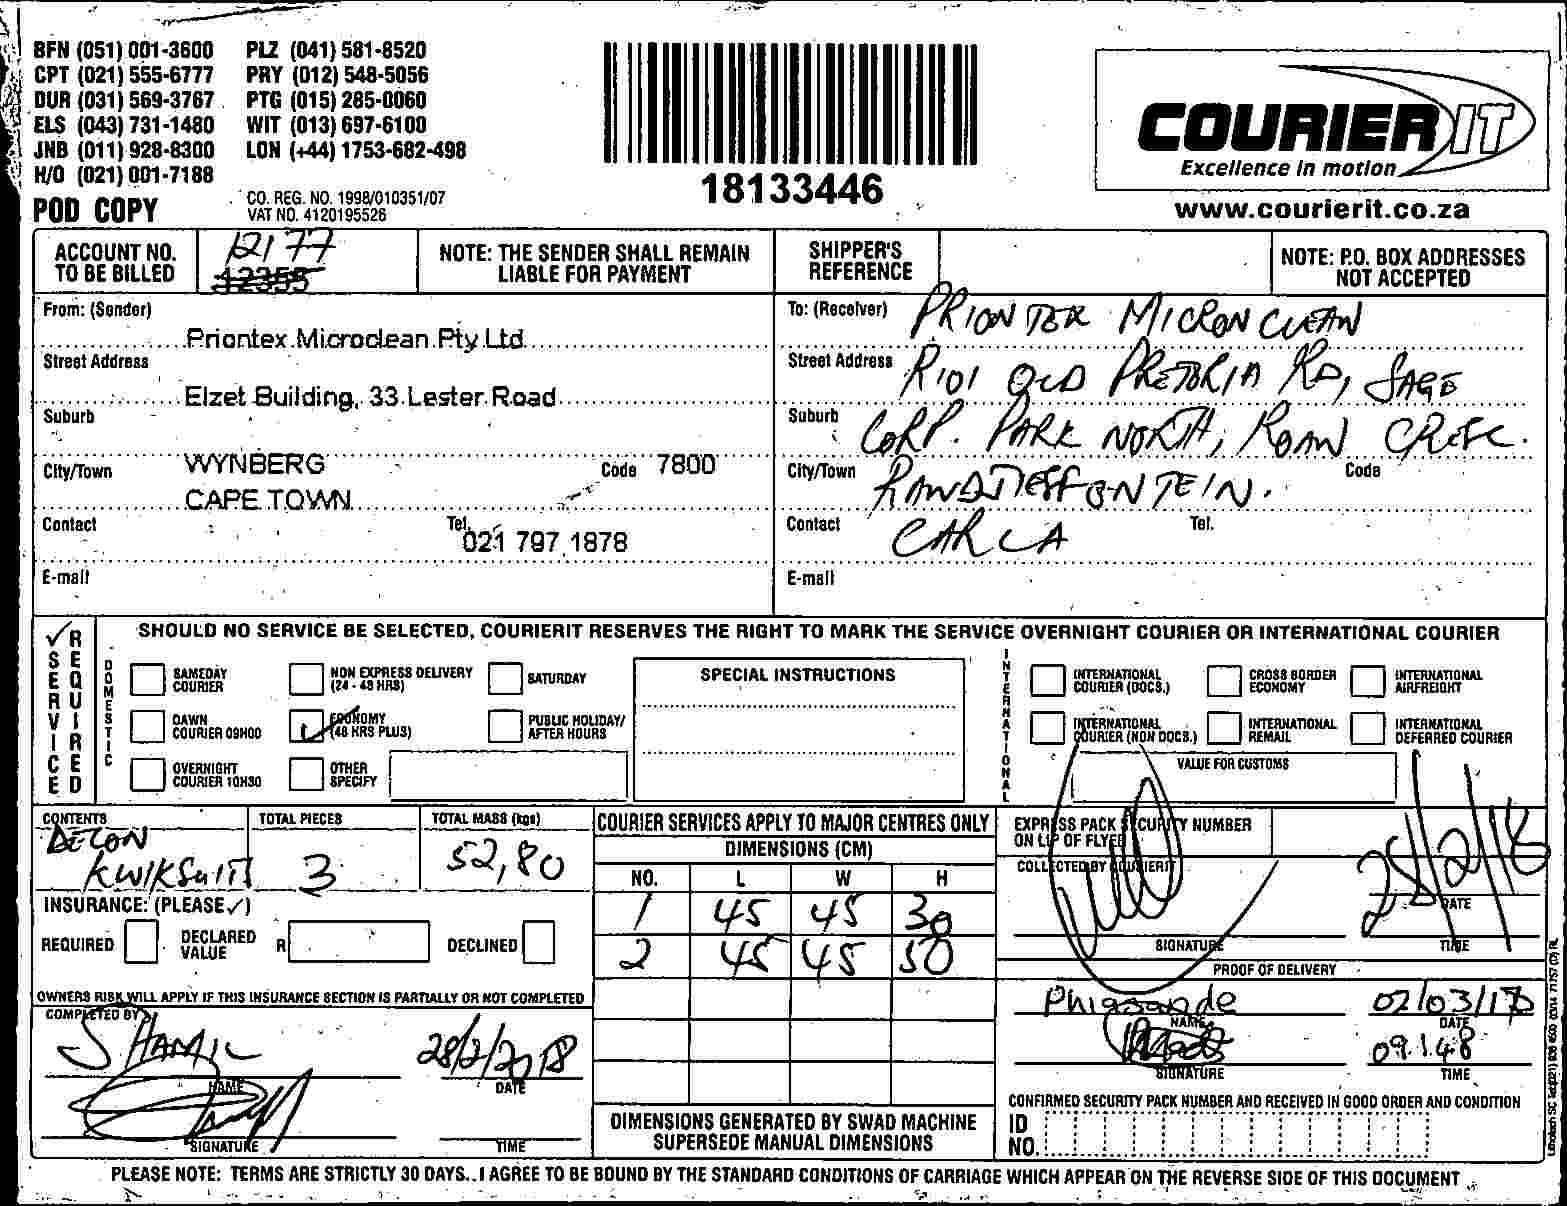 BFN (051) 001-3600 PLZ (041) 581-8520
CPT (021) 555-6777 PRY (012) 548-5056
DUR (031) 569-3767 PTG (015) 285-0060
ELS (043) 731-1480 WIT (013) 697-6100
JNB (011) 928-8300 LON (+44) 1753-682-498
H/O (021) 001-7188
POD COPY
CO. REG. NO. 1998/010351/07
VAT NO. 4120195526
18133446
COURIER IT
Excellence in motion
www.courierit.co.za
ACCOUNT NO. TO BE BILLED
12177
12355
NOTE: THE SENDER SHALL REMAIN
LIABLE FOR PAYMENT
SHIPPER'S
REFERENCE
NOTE: P.O. BOX ADDRESSES
NOT ACCEPTED
From: (Sender)
Priontex Microclean Pty Ltd
Street Address
Elzet Building, 33 Lester Road
Suburb
City/Town WYNBERG Code 7800
CAPE TOWN
Contact Tel. 021 797 1878
E-mail
To: (Receiver) PRIONTEX MICRONCLEAN
Street Address R101 OLD PRETORIA RD, SAGE
Suburb CORP. PARK NORTH, ROAN CRESC.
City/Town RANDJTESFONTEIN. Code
Contact CARLA Tel.
E-mail
SERVICE REQUIRED
SHOULD NO SERVICE BE SELECTED, COURIERIT RESERVES THE RIGHT TO MARK THE SERVICE OVERNIGHT COURIER OR INTERNATIONAL COURIER
DOMESTIC
SAMEDAY COURIER
NON EXPRESS DELIVERY (24 - 48 HRS)
SATURDAY
DAWN COURIER 09H00
ECONOMY (48 HRS PLUS)
PUBLIC HOLIDAY/ AFTER HOURS
OVERNIGHT COURIER 10H30
OTHER SPECIFY
SPECIAL INSTRUCTIONS
INTERNATIONAL
INTERNATIONAL COURIER (DOCS.)
CROSS BORDER ECONOMY
INTERNATIONAL AIRFREIGHT
INTERNATIONAL COURIER (NON DOCS.)
INTERNATIONAL REMAIL
INTERNATIONAL DEFERRED COURIER
VALUE FOR CUSTOMS
CONTENTS
DECON
KWIKSUITS
TOTAL PIECES
3
TOTAL MASS (kgs)
52,80
INSURANCE: (PLEASE ✓)
REQUIRED
DECLARED VALUE R
DECLINED
OWNERS RISK WILL APPLY IF THIS INSURANCE SECTION IS PARTIALLY OR NOT COMPLETED
COMPLETED BY
SHAMIL 28/2/2018
NAME DATE
SIGNATURE TIME
COURIER SERVICES APPLY TO MAJOR CENTRES ONLY
DIMENSIONS (CM)
NO. L W H
1 45 45 30
2 45 45 50
DIMENSIONS GENERATED BY SWAD MACHINE
SUPERSEDE MANUAL DIMENSIONS
EXPRESS PACK SECURITY NUMBER
ON LIP OF FLYER
COLLECTED BY COURIERIT
28/2/18
DATE
SIGNATURE TIME
PROOF OF DELIVERY
02/03/18
NAME DATE
09:48
SIGNATURE TIME
CONFIRMED SECURITY PACK NUMBER AND RECEIVED IN GOOD ORDER AND CONDITION
ID NO.
PLEASE NOTE: TERMS ARE STRICTLY 30 DAYS. I AGREE TO BE BOUND BY THE STANDARD CONDITIONS OF CARRIAGE WHICH APPEAR ON THE REVERSE SIDE OF THIS DOCUMENT